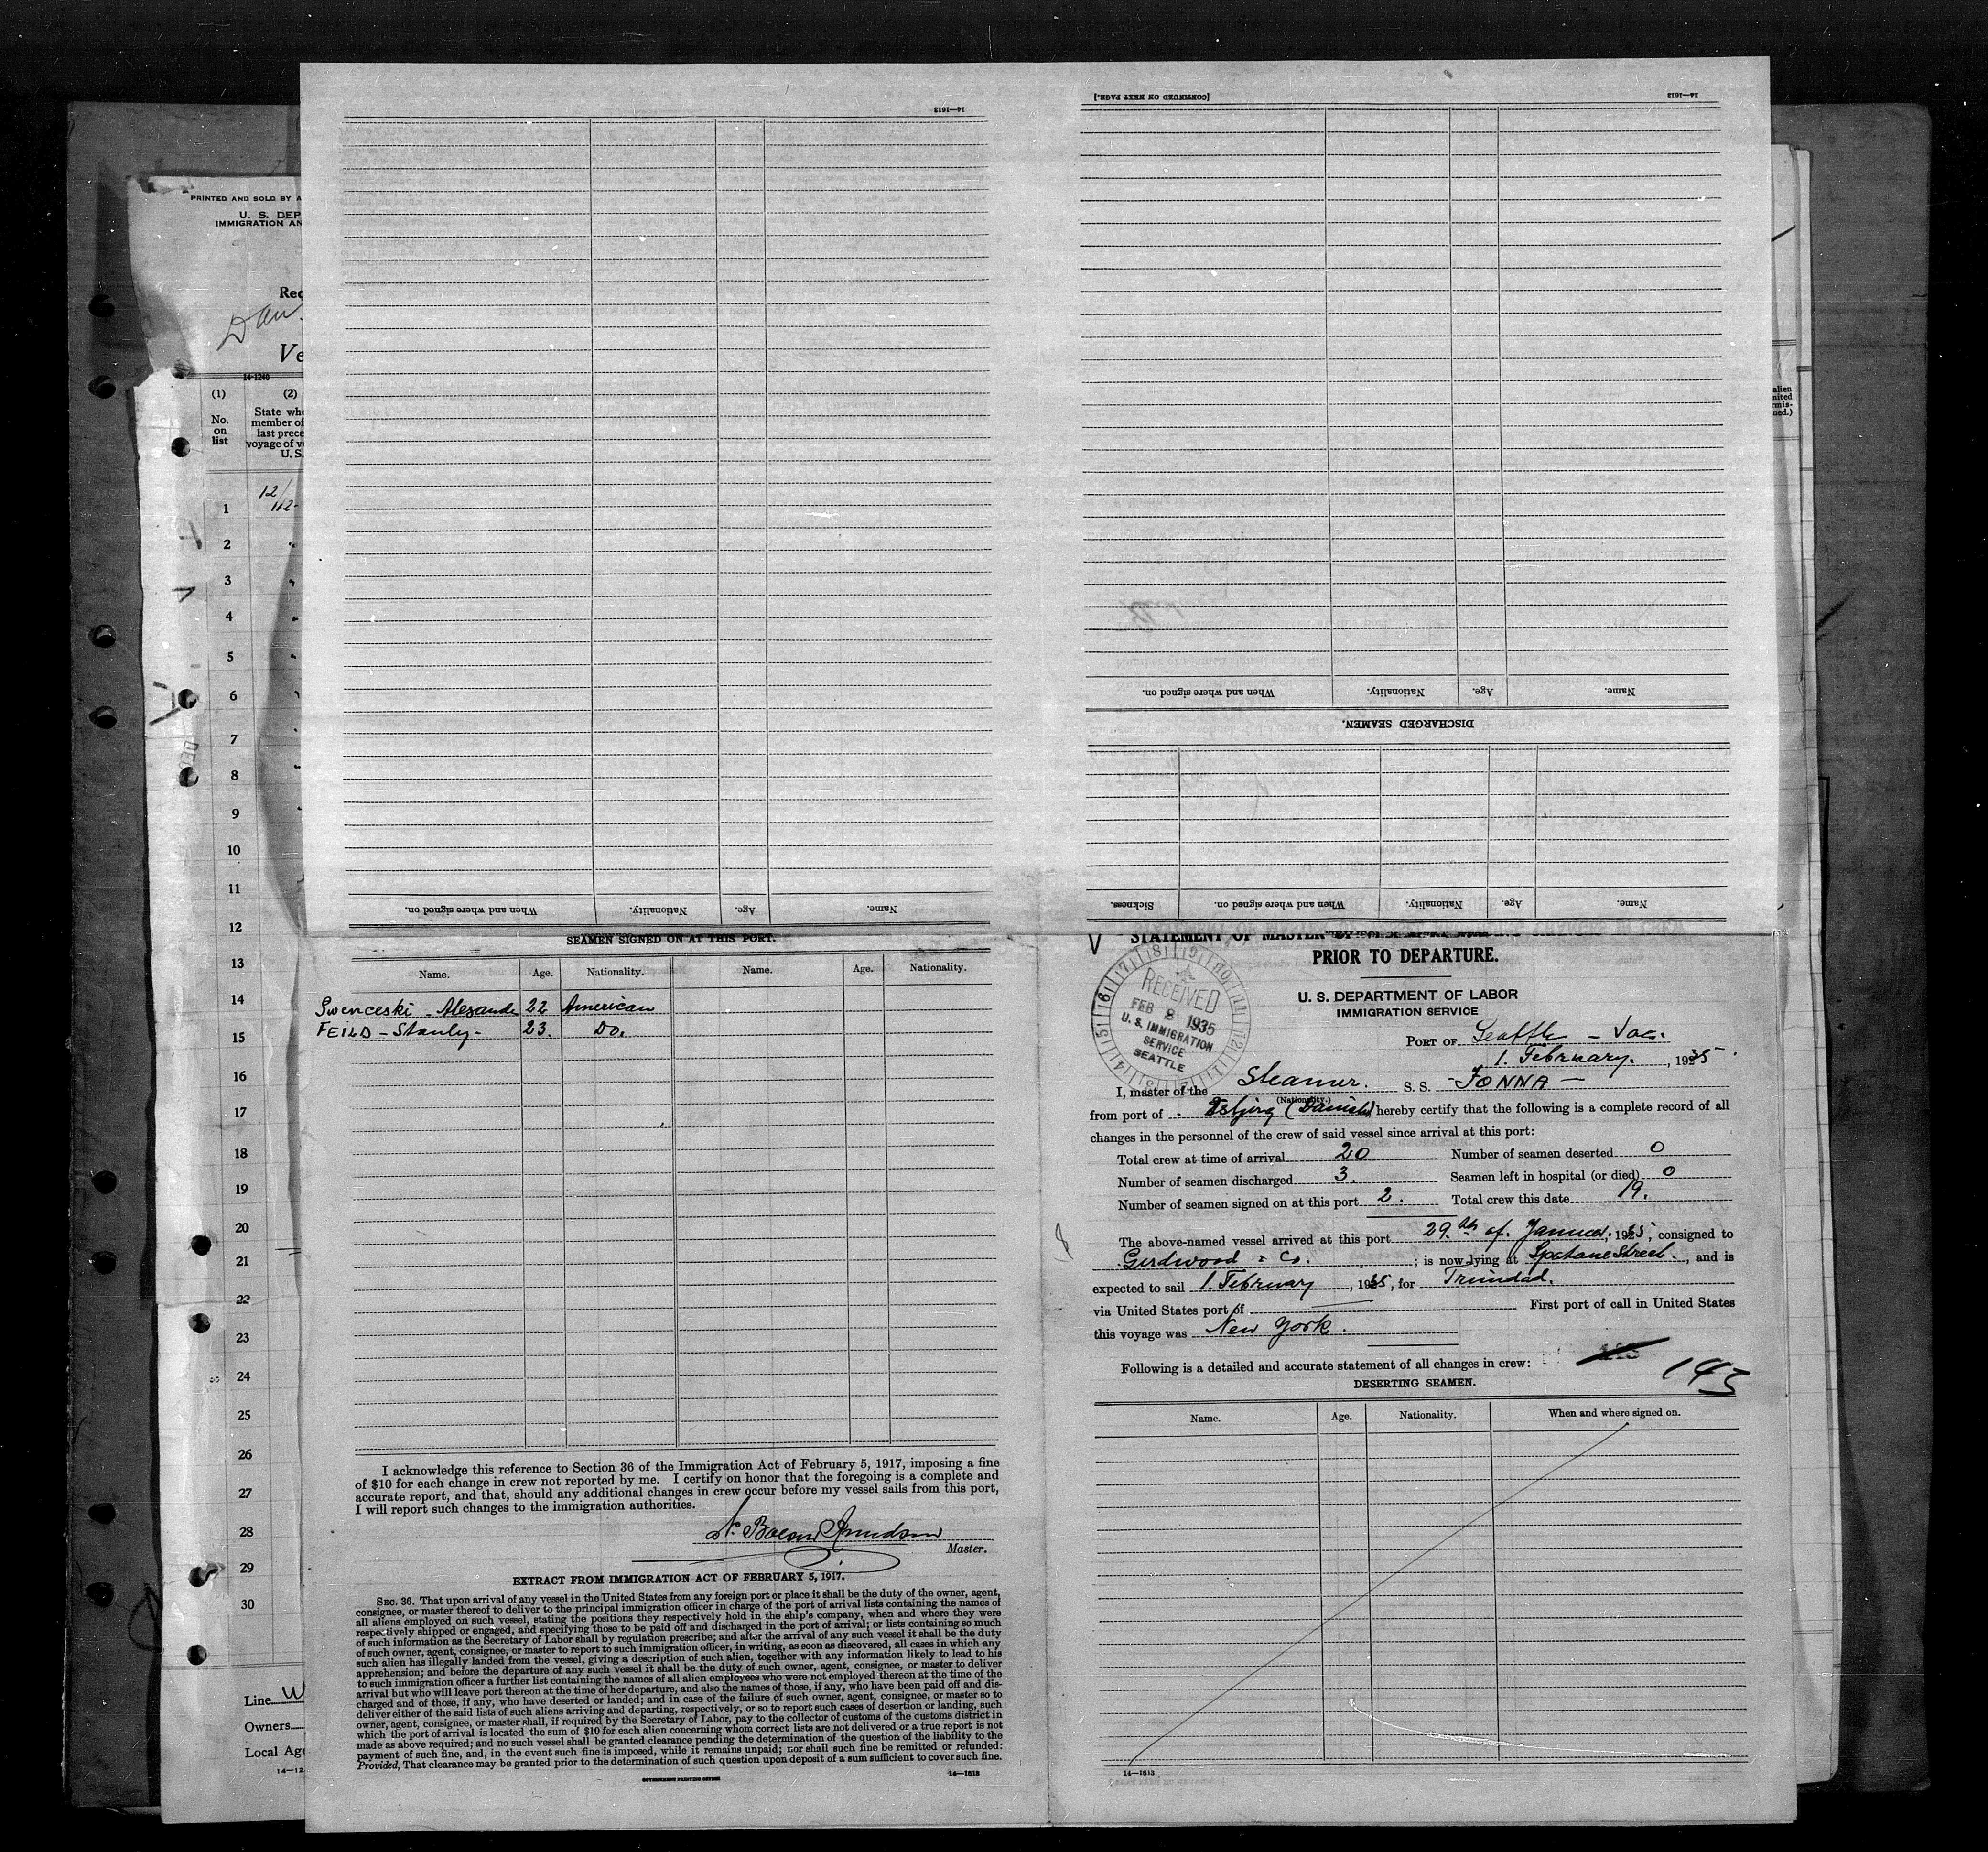 PRINTED AND SOLD BY A
U. S. DEP
IMMIGRATION AN
Rec
Dan
Ve
14-1240
(1) (2)
No. on list
State whe
member of
last prece
voyage of v
U. S.
12/
112-
1
2
3
4
5
6
7
8
9
10
11
12
13
14
15
16
17
18
19
20
21
22
23
24
25
26
27
28
29
30
Line W
Owners
Local Age
14—12
14—1613
When and where signed on. Nationality. Age. Name.
[CONTINUED ON NEXT PAGE.]
14—1613
When and where signed on. Nationality. Age. Name.
DISCHARGED SEAMEN.
Sickness. When and where signed on. Nationality. Age. Name.
alien
nited
rmis-
ned.)
SEAMEN SIGNED ON AT THIS PORT.
Name. Age. Nationality. Name. Age. Nationality.
Swenceski - Alexande 22 American
FEILD - Stanly - 23. Do.
I acknowledge this reference to Section 36 of the Immigration Act of February 5, 1917, imposing a fine
of $10 for each change in crew not reported by me. I certify on honor that the foregoing is a complete and
accurate report, and that, should any additional changes in crew occur before my vessel sails from this port,
I will report such changes to the immigration authorities.
Master.
EXTRACT FROM IMMIGRATION ACT OF FEBRUARY 5, 1917.
SEC. 36. That upon arrival of any vessel in the United States from any foreign port or place it shall be the duty of the owner, agent,
consignee, or master thereof to deliver to the principal immigration officer in charge of the port of arrival lists containing the names of
all aliens employed on such vessel, stating the positions they respectively hold in the ship's company, when and where they were
respectively shipped or engaged, and specifying those to be paid off and discharged in the port of arrival; or lists containing so much
of such information as the Secretary of Labor shall by regulation prescribe; and after the arrival of any such vessel it shall be the duty
of such owner, agent, consignee, or master to report to such immigration officer, in writing, as soon as discovered, all cases in which any
such alien has illegally landed from the vessel, giving a description of such alien, together with any information likely to lead to his
apprehension; and before the departure of any such vessel it shall be the duty of such owner, agent, consignee, or master to deliver
to such immigration officer a further list containing the names of all alien employees who were not employed thereon at the time of the
arrival but who will leave port thereon at the time of her departure, and also the names of those, if any, who have been paid off and dis-
charged and of those, if any, who have deserted or landed; and in case of the failure of such owner, agent, consignee, or master so to
deliver either of the said lists of such aliens arriving and departing, respectively, or so to report such cases of desertion or landing, such
owner, agent, consignee, or master shall, if required by the Secretary of Labor, pay to the collector of customs of the customs district in
which the port of arrival is located the sum of $10 for each alien concerning whom correct lists are not delivered or a true report is not
made as above required; and no such vessel shall be granted clearance pending the determination of the question of the liability to the
payment of such fine, and, in the event such fine is imposed, while it remains unpaid; nor shall such fine be remitted or refunded:
Provided, That clearance may be granted prior to the determination of such question upon deposit of a sum sufficient to cover such fine.
GOVERNMENT PRINTING OFFICE 14—1613
STATEMENT OF MASTER
PRIOR TO DEPARTURE.
RECEIVED
FEB 8 1935
U. S. IMMIGRATION
SERVICE
SEATTLE
U. S. DEPARTMENT OF LABOR
IMMIGRATION SERVICE
PORT OF Seattle
1. February. , 1935
I, master of the Steamer. S. S. - JONNA -
(Nationality.)
from port of Esbjerg (Danish) hereby certify that the following is a complete record of all
changes in the personnel of the crew of said vessel since arrival at this port:
Total crew at time of arrival 20 Number of seamen deserted 0
Number of seamen discharged 3. Seamen left in hospital (or died) 0
Number of seamen signed on at this port 2. Total crew this date 19.
The above-named vessel arrived at this port 29.th of Januar, 1935, consigned to
Girdwood & Co. ; is now lying at Spokane Street. , and is
expected to sail 1. February , 1935, for Trinidad.
via United States port of — First port of call in United States
this voyage was New York.
Following is a detailed and accurate statement of all changes in crew: 195
DESERTING SEAMEN.
Name. Age. Nationality. When and where signed on.
14—1613